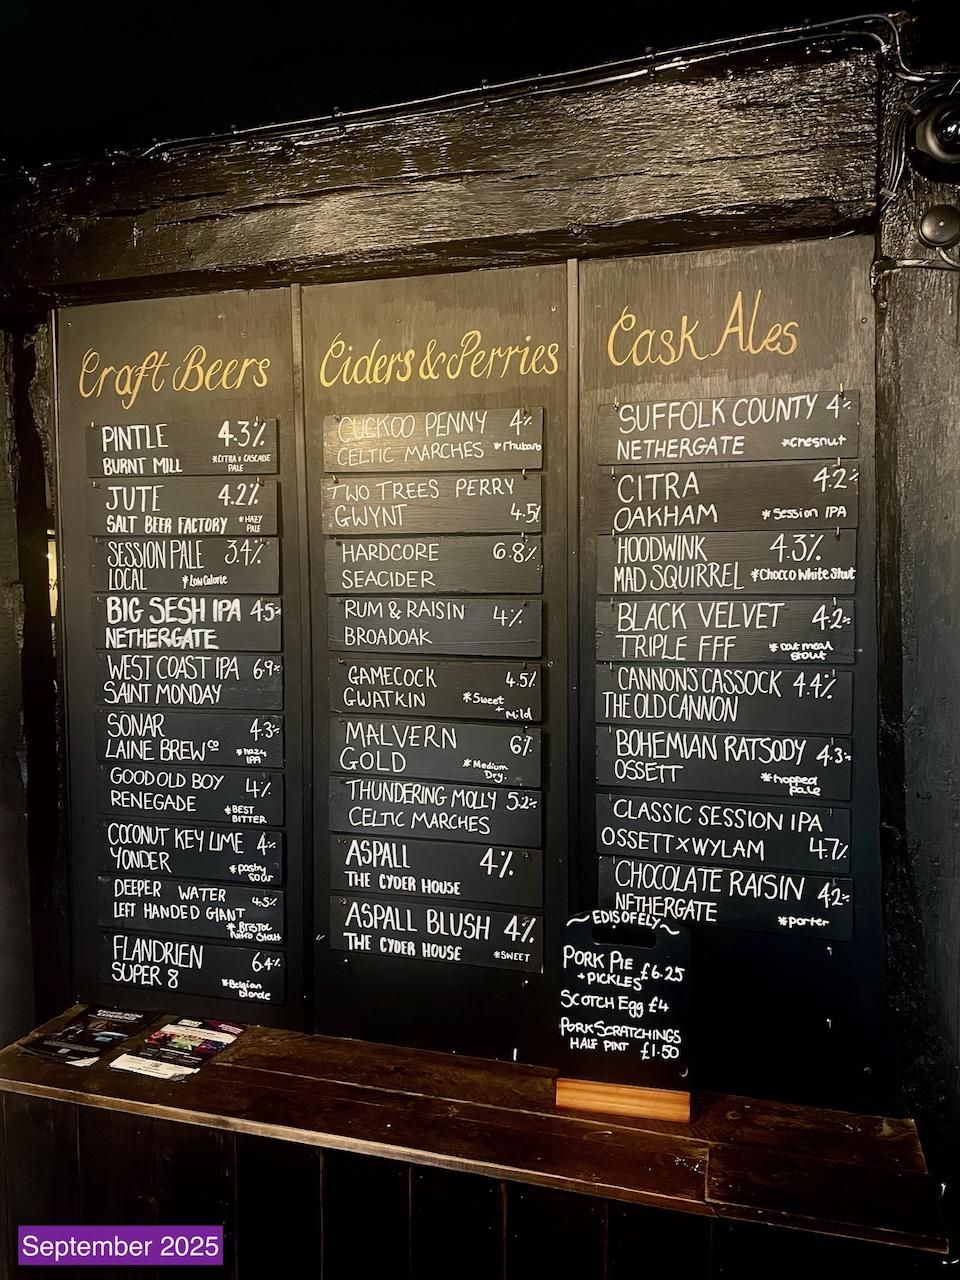 Craft Beers
PINTLE 4.3%
BURNT MILL *CITRA & CASCADE
PALE
JUTE 4.2%
SALT BEER FACTORY *HAZY
PALE
SESSION PALE 3.4%
LOCAL *Low Calorie
BIG SESH IPA 4.5%
NETHERGATE
WEST COAST IPA 6.9%
SAINT MONDAY
SONAR 4.3%
LAINE BREW CO *hazy
IPA
GOOD OLD BOY 4%
RENEGADE *BEST
BITTER
COCONUT KEY LIME 4%
YONDER *pastry
sour
DEEPER WATER 4.5%
LEFT HANDED GIANT
*Bristol
Nitro Stout
FLANDRIEN 6.4%
SUPER 8 *Belgian
blonde
Ciders & Perries
CUCKOO PENNY 4%
CELTIC MARCHES *rhubarb
TWO TREES PERRY
GWYNT 4.5%
HARDCORE 6.8%
SEACIDER
RUM & RAISIN 4%
BROADOAK
GAMECOCK 4.5%
GWATKIN *Sweet
+ Mild
MALVERN 6%
GOLD *Medium
Dry.
THUNDERING MOLLY 5.2%
CELTIC MARCHES
ASPALL 4%
THE CYDER HOUSE
ASPALL BLUSH 4%
THE CYDER HOUSE *SWEET
Cask Ales
SUFFOLK COUNTY 4%
NETHERGATE *chesnut
CITRA 4.2%
OAKHAM *Session IPA
HOODWINK 4.3%
MAD SQUIRREL *Chocco White Stout
BLACK VELVET 4.2%
TRIPLE FFF *oatmeal
stout
CANNON'S CASSOCK 4.4%
THE OLD CANNON
BOHEMIAN RATSODY 4.3%
OSSETT *hopped
pale
CLASSIC SESSION IPA
OSSETT X WYLAM 4.7%
CHOCOLATE RAISIN 4.2%
NETHERGATE *porter
~ EDISOFELY ~
PORK PIE
+ PICKLES £6.25
SCOTCH Egg £4
PORK SCRATCHINGS
HALF PINT £1.50
September 2025